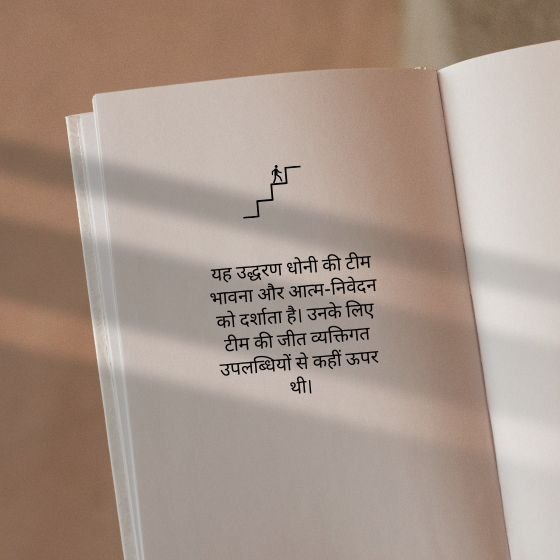 यह उद्धरण धोनी की टीम
भावना और आत्म-निवेदन
को दर्शाता है। उनके लिए
टीम की जीत व्यक्तिगत
उपलब्धियों से कहीं ऊपर
थी।